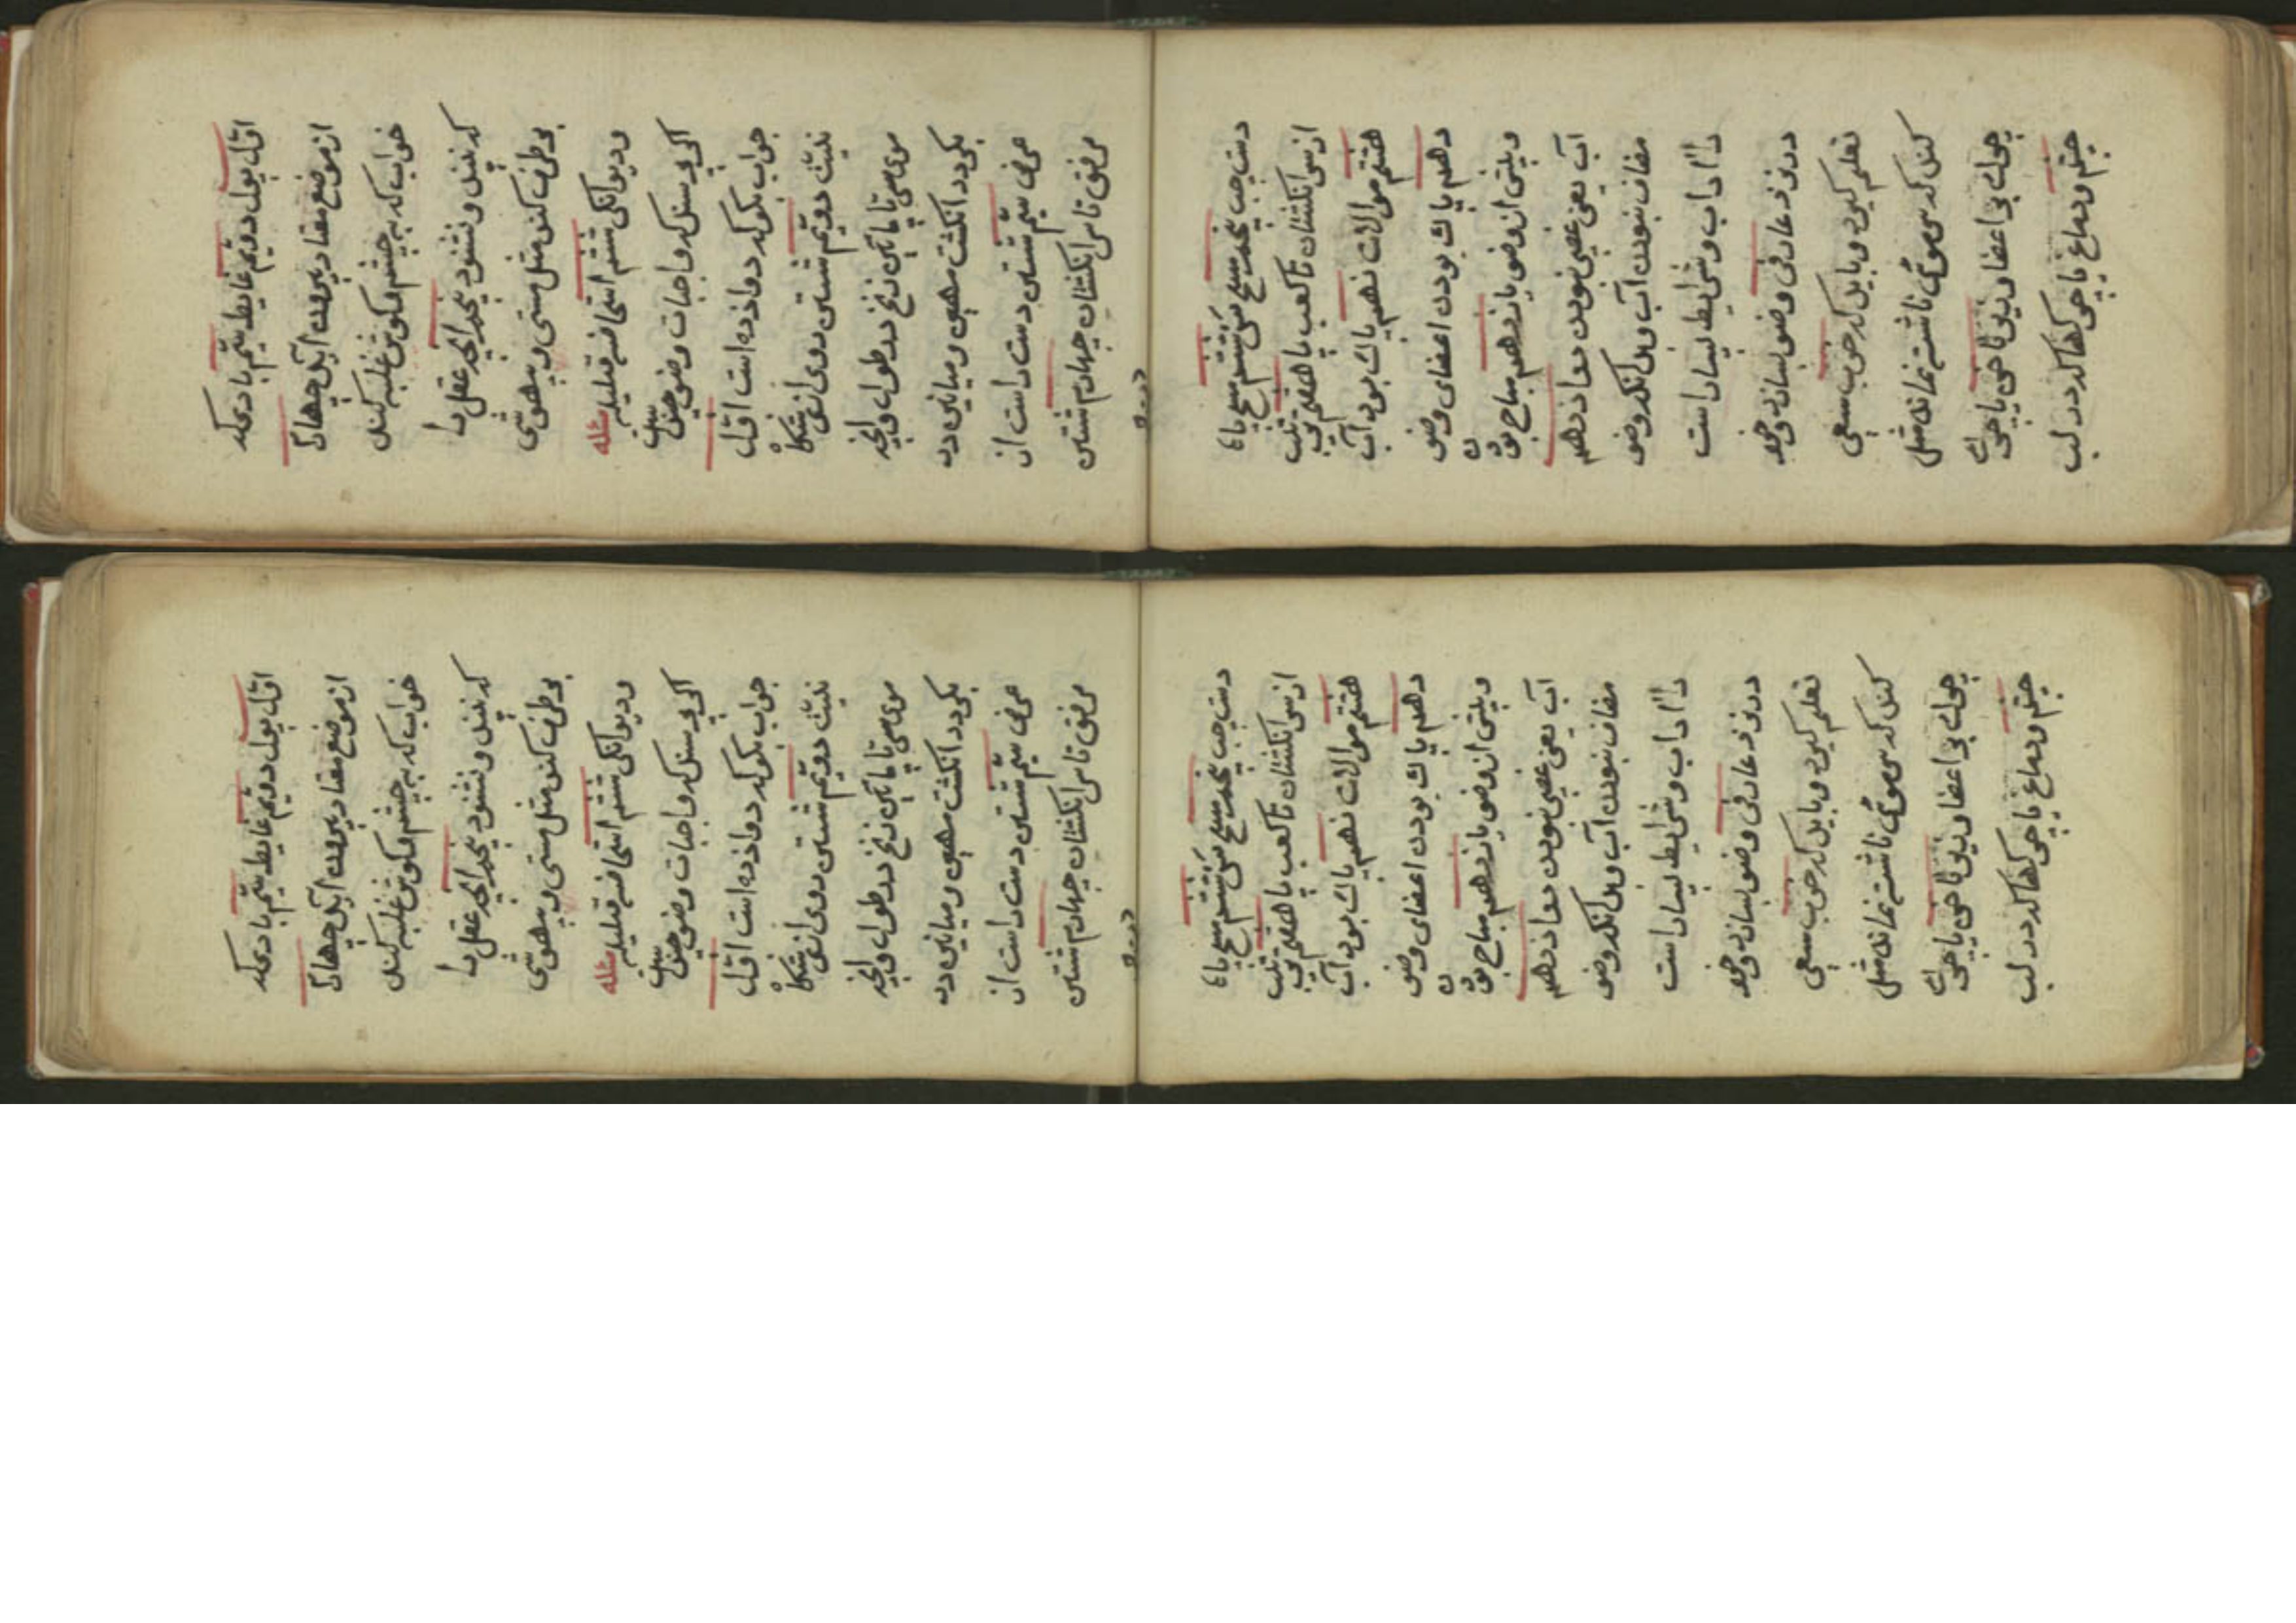 اول بول دویم غایط سیم بادی که
از موضع معتاد بیرون آید چهارم
خواب که بر چشم و گوش غلبه کند
که نبیند و نشنود پنجم انچه عقل را
بر طرف کند مثل مستی و بیهوشی
و دیوانگی ششم استحاضه قلیله مسئله
اگر پرسند که واجبات وضو چند است
جواب بگو که دوازده است اول
نیت دویم شستن روی از رستنگاه
موی سر تا پایین زنخ در طول و انچه
بگیرد انگشت مهین و میانین در
عرض سیم شستن دست راست از
مرفق تا سر انگشتان چهارم شستن
دست چپ پنجم مسح سر ششم مسح پا
از سر انگشتان تا کعب پا هفتم ترتیب
هشتم موالات نهم پاک بودن آب
دهم پاک بودن اعضای وضو
و پیش از وضو یازدهم مباح بودن
آب یعنی غصبی نبودن دوازدهم
مضاف نبودن آب و بدانکه وضو
را آداب و شرایط بسیار است
در نزد عارفی وضو بسازد و خود
تعلیم گیرد و باید که خوب سعی
کند که سر مویی ناشسته نماند مثل
چرک بر اعضا و زیر ناخن یا چرک
چشم و دماغ یا چرکها که در لب
اول بول دویم غایط سیم بادی که
از موضع معتاد بیرون آید چهارم
خواب که بر چشم و گوش غلبه کند
که نبیند و نشنود پنجم انچه عقل را
بر طرف کند مثل مستی و بیهوشی
و دیوانگی ششم استحاضه قلیله مسئله
اگر پرسند که واجبات وضو چند است
جواب بگو که دوازده است اول
نیت دویم شستن روی از رستنگاه
موی سر تا پایین زنخ در طول و انچه
بگیرد انگشت مهین و میانین در
عرض سیم شستن دست راست از
مرفق تا سر انگشتان چهارم شستن
دست چپ پنجم مسح سر ششم مسح پا
از سر انگشتان تا کعب پا هفتم ترتیب
هشتم موالات نهم پاک بودن آب
دهم پاک بودن اعضای وضو
و پیش از وضو یازدهم مباح بودن
آب یعنی غصبی نبودن دوازدهم
مضاف نبودن آب و بدانکه وضو
را آداب و شرایط بسیار است
در نزد عارفی وضو بسازد و خود
تعلیم گیرد و باید که خوب سعی
کند که سر مویی ناشسته نماند مثل
چرک بر اعضا و زیر ناخن یا چرک
چشم و دماغ یا چرکها که در لب